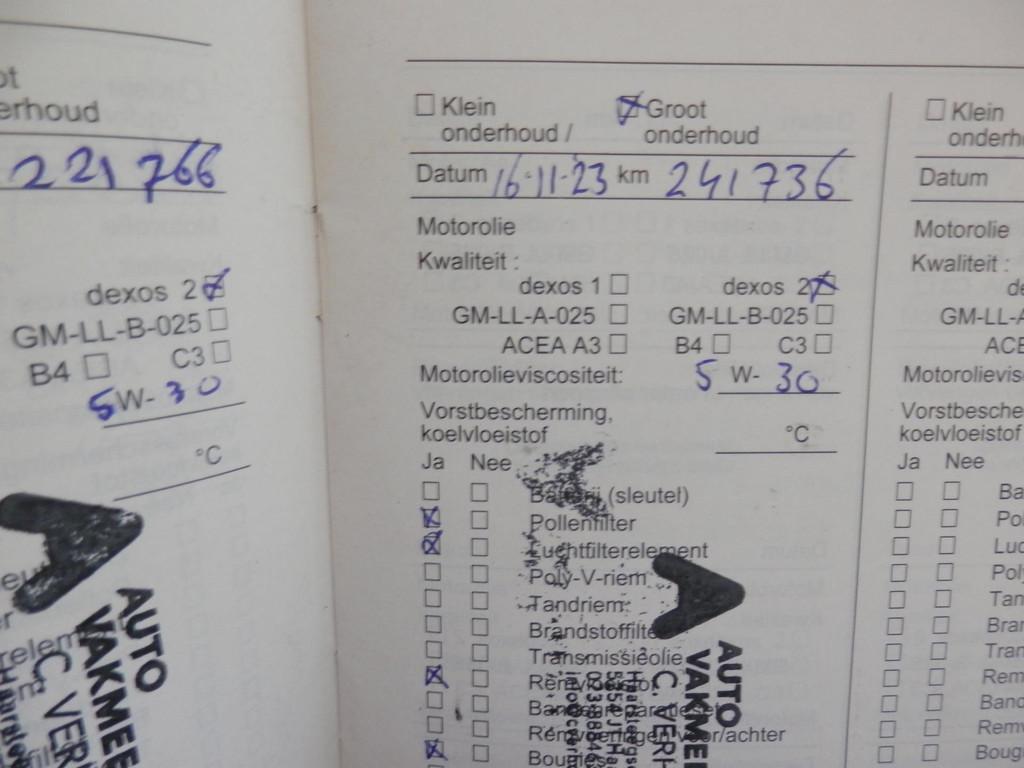 onderhoud
221 766
dexos 2
GM-LL-B-025
B4 C3
5 W- 30
°C
AUTO
VAKMEE
Klein
onderhoud /
Groot
onderhoud
Datum 16-11-23 km 241736
Motorolie
Kwaliteit :
dexos 1 dexos 2
GM-LL-A-025 GM-LL-B-025
ACEA A3 B4 C3
Motorolieviscositeit: 5 W- 30
Vorstbescherming,
koelvloeistof °C
Ja Nee
Batterij (sleutel)
Pollenfilter
Luchtfilterelement
Poly-V-riem
Tandriem
Brandstoffilte
Transmissieolie
Remvoeringen voor/achter
AUTO
VAKMEE
C. VERH
Klein
onderh
Datum
Motorolie
Kwaliteit :
de
GM-LL-A
ACE
Motorolievis
Vorstbesche
koelvloeistof
Ja Nee
Ba
Po
Luc
Poly
Tan
Bran
Tran
Rem
Band
Remv
Boug